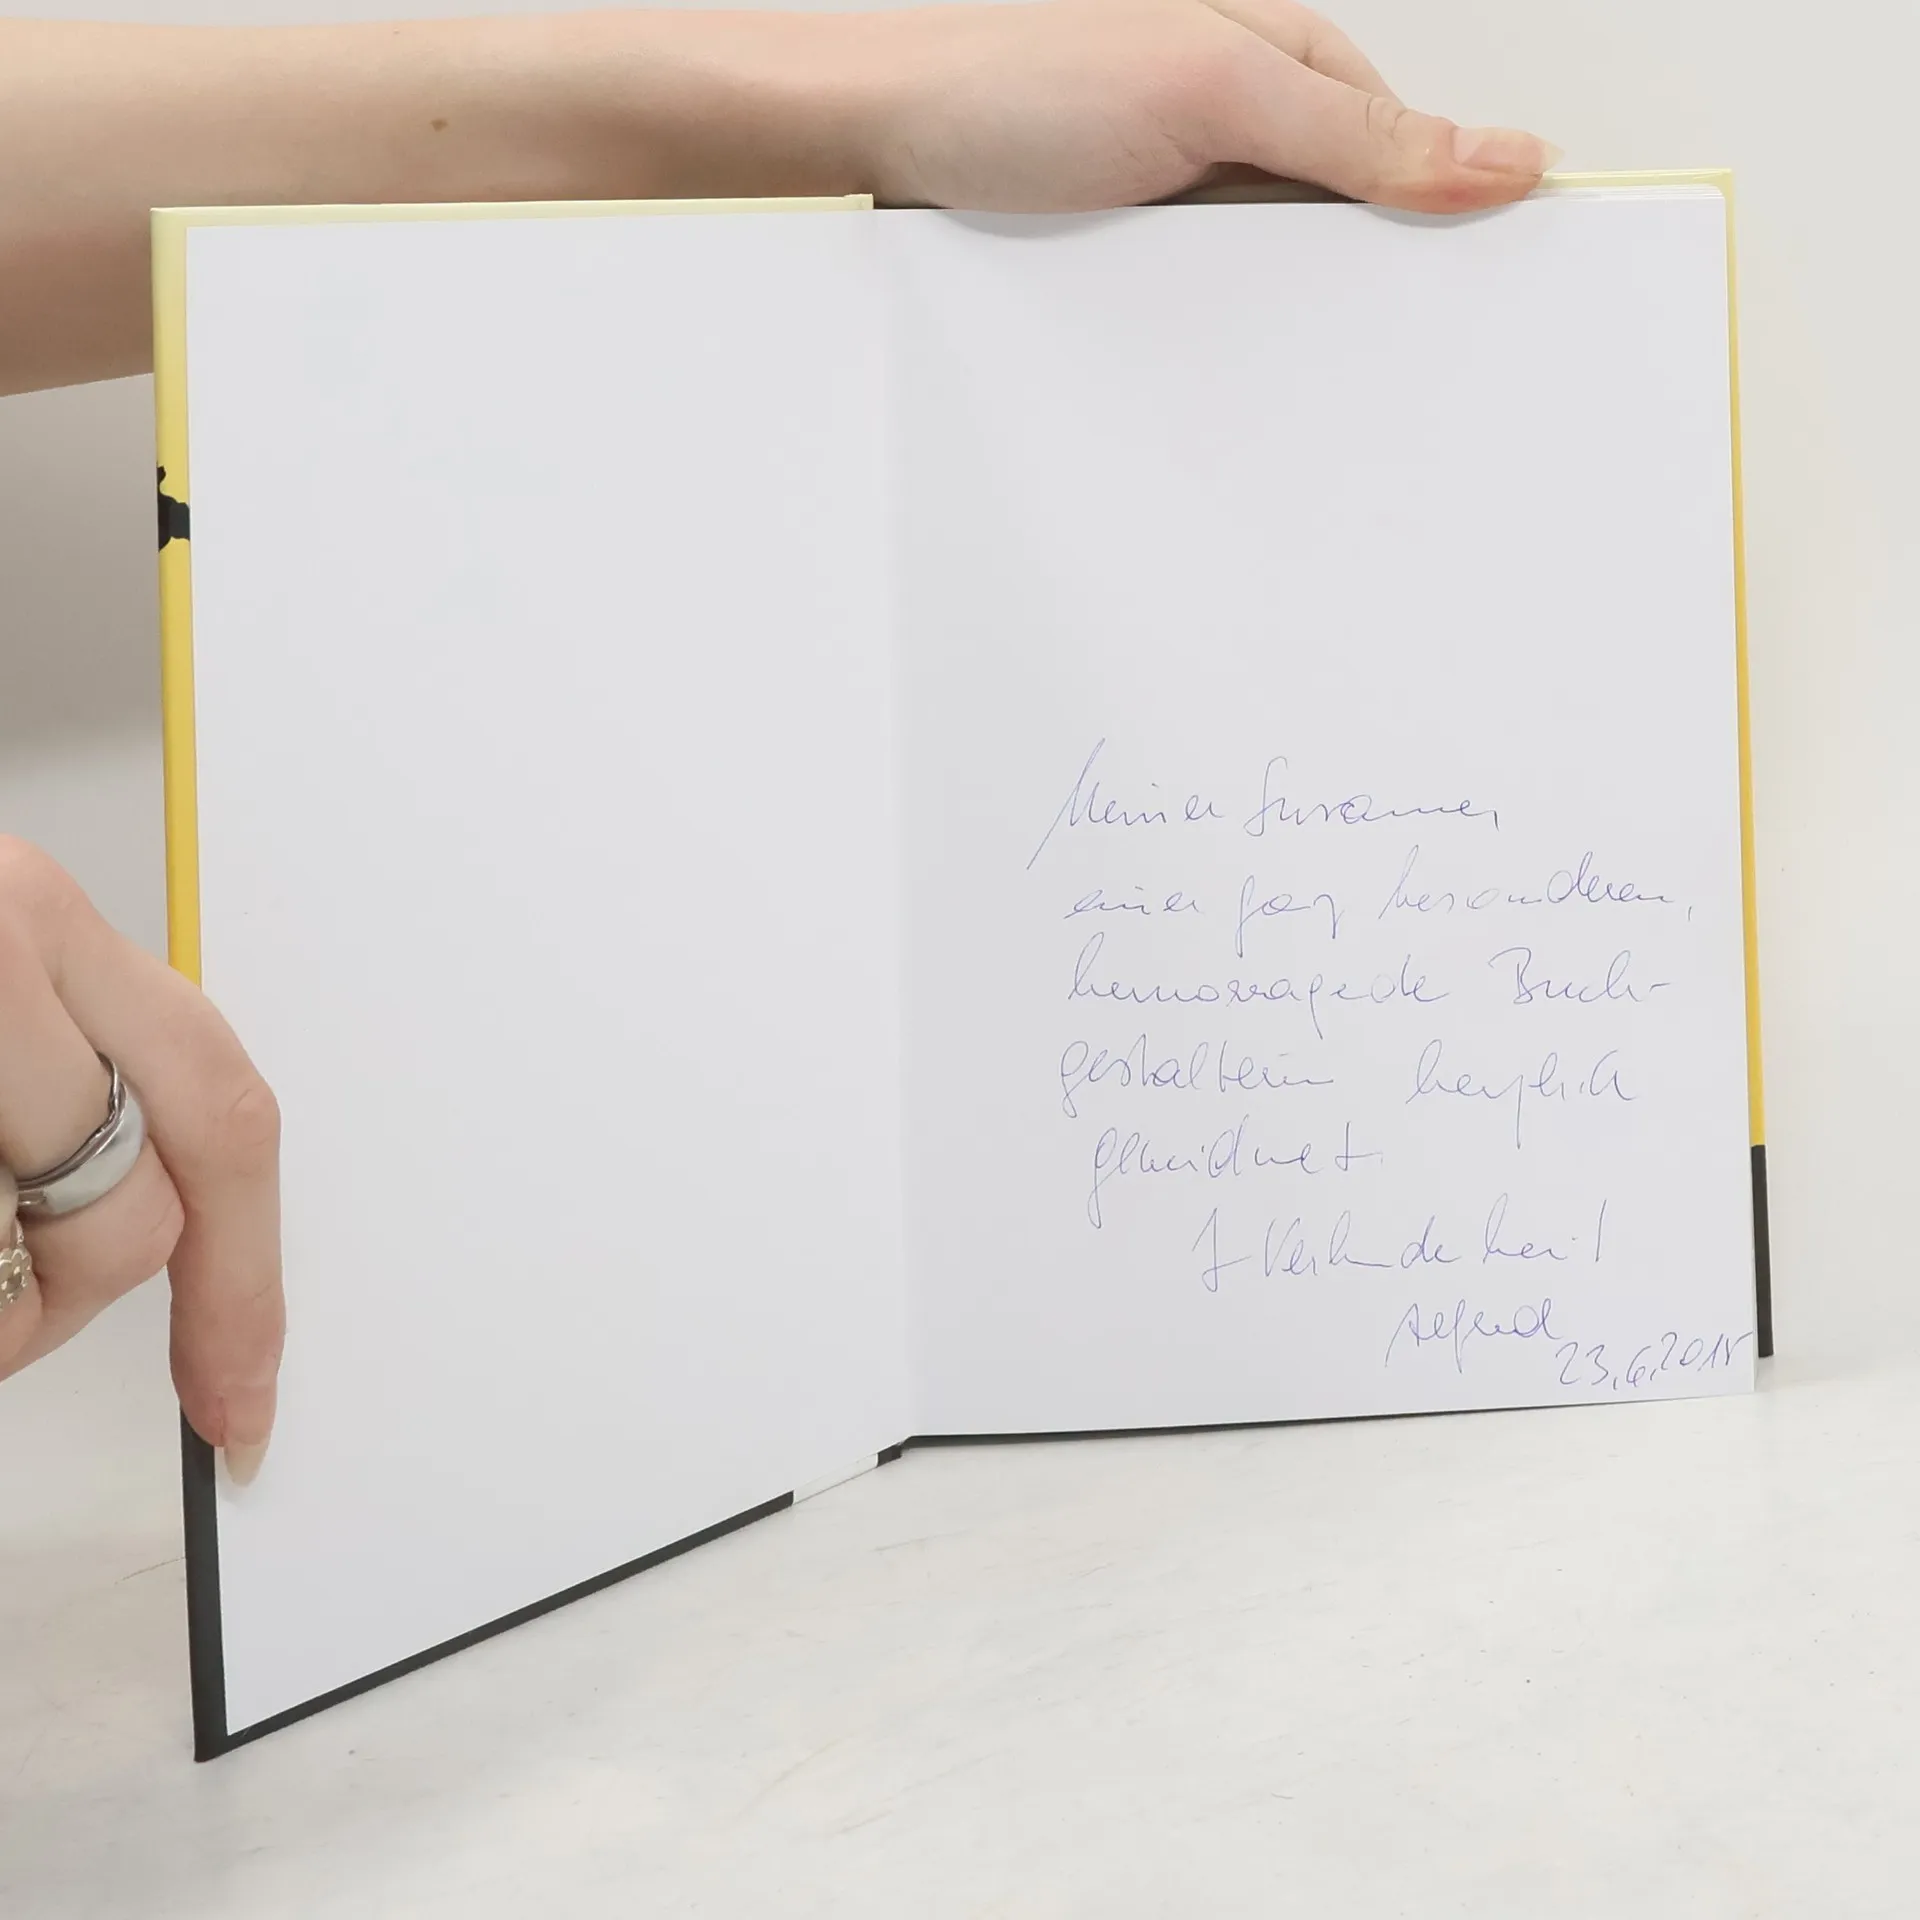 Meiner Susanne,
einer ganz besonderen,
hervorragende Buch-
gestalterin herzlich
gewidmet.
I Verbundenheit
23.6.2018